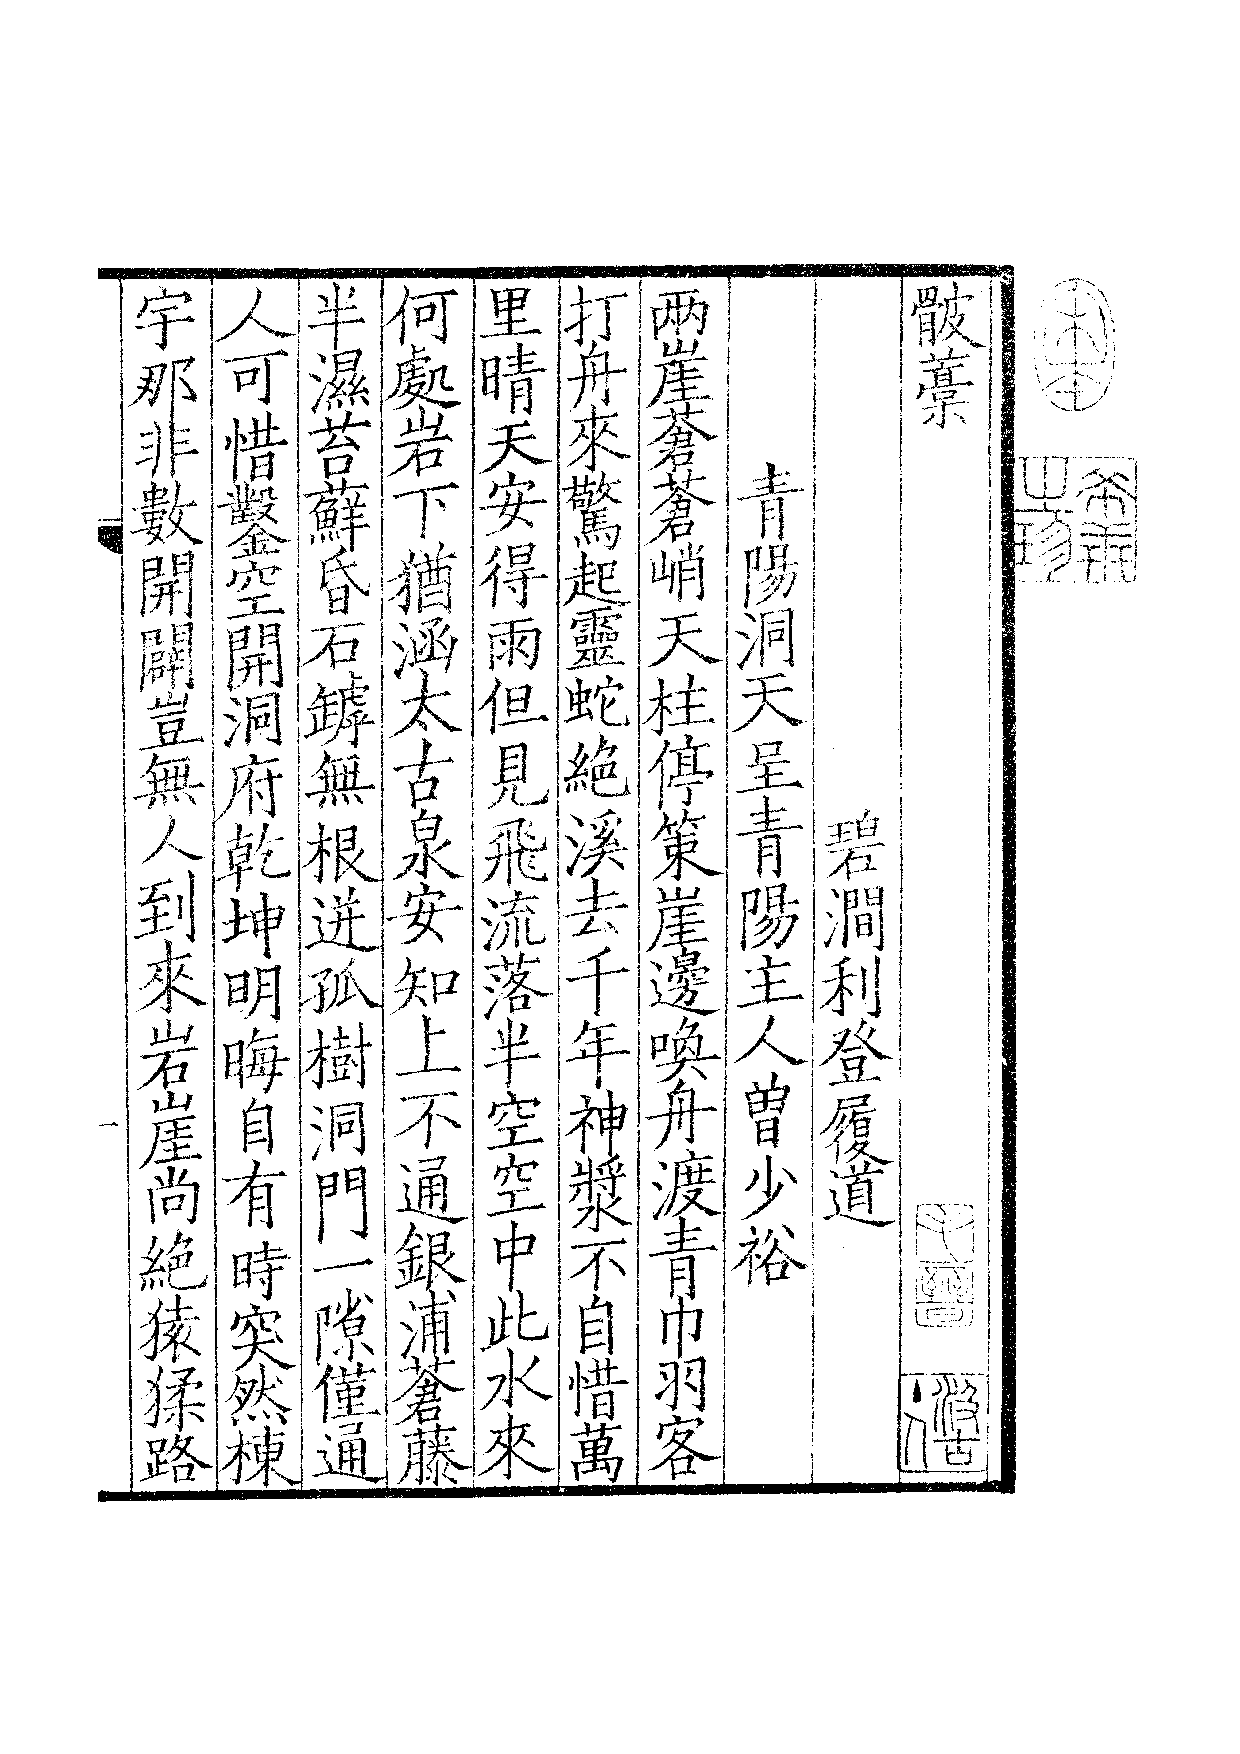 骳藁
碧澗利登履道
青陽洞天呈青陽主人曽少裕
兩崖蒼蒼峭天柱停策崖邊喚舟渡青巾羽客
打舟來驚起靈蛇絶溪去千年神漿不自惜萬
里晴天安得雨但見飛流落半空空中此水來
何處岩下猶涵太古泉安知上不通銀浦蒼藤
半濕苔蘚昏石罅無根迸孤樹洞門一隙僅通
人可惜鑿空開洞府乾坤明晦自有時突然棟
宇那非數開闢豈無人到來岩崖尚絶猿猱路
一
希世
之珍